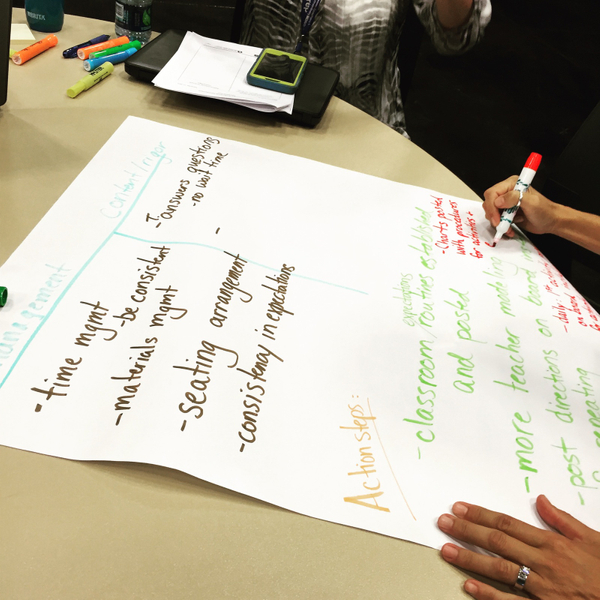 management
- time mgmt
- be consistent
- materials mgmt
- seating arrangement
- consistency in expectations
content/rigor
- T answers questions
- no wait time
-
Action steps:
expectations
- classroom/routines established
and posted
- Charts posted
with procedures
for activities +
- more teacher modeling
- post directions on board
repeating
- daily
on board